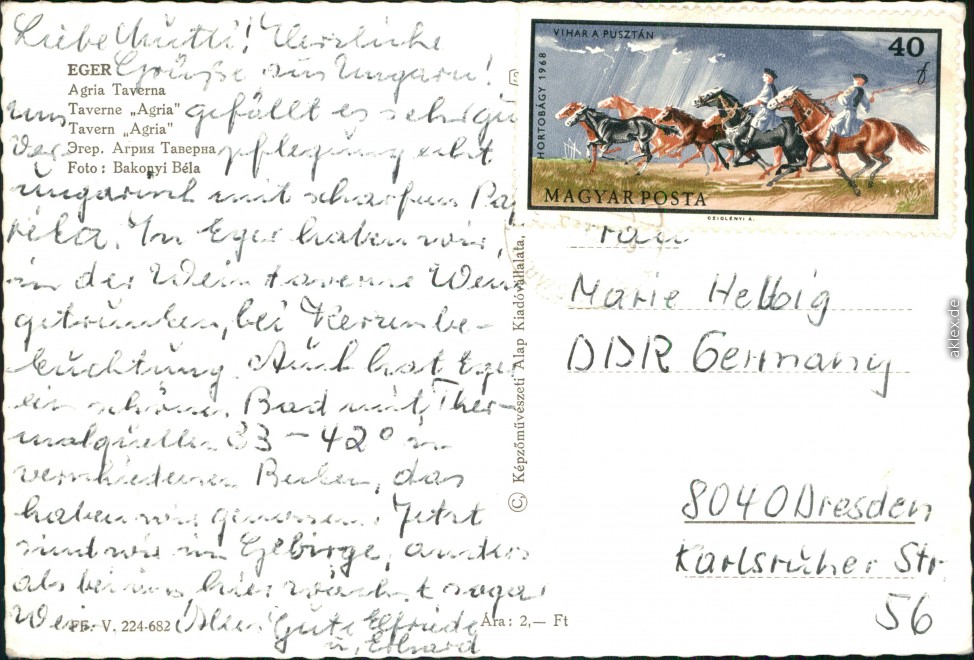 Liebe Mutti! Herzliche
EGER Grüße aus Ungarn!
Agria Taverna
Taverne „Agria"
Tavern „Agria"
Эгер. Агрия Таверна
Foto : Bakonyi Béla
uns gefällt es sehr gu
Verpflegung echt
ungarisch mit scharfem Pap
rika. In Eger haben wir,
in der Weintaverne Wein
getrunken, bei Kerzenbe-
leuchtung. Auch hat Eger
ein schönes Bad mit Ther-
malquellen 33 – 42° in
verschiedenen Becken, das
haben wir genossen. Jetzt
sind wir im Gebirge, anders
als bei uns hier wächst sogar
Wein. Alles Gute Elfriede
u. Erhard
FF. V. 224-682
Ára : 2,— Ft
© Képzőművészeti Alap Kiadóvállalata,
VIHAR A PUSZTÁN
40 f
HORTOBÁGY 1968
MAGYAR POSTA
CZIGLÉNYI Á.
Frau
Marie Helbig
DDR Germany
8040 Dresden
Karlsruher Str.
56
aklex.de